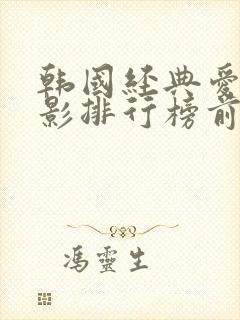 韩国经典爱
影排行榜前
冯灵生